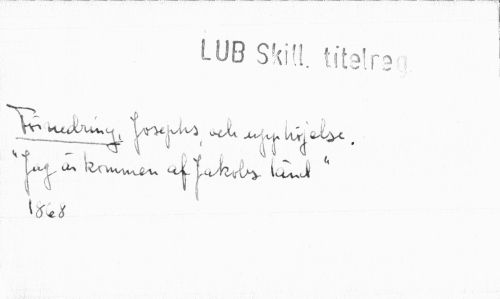 LUB Skill. titelreg.
Förnedring, Josephs, och upphöjelse.
"Jag är kommen af Jakobs land"
1868